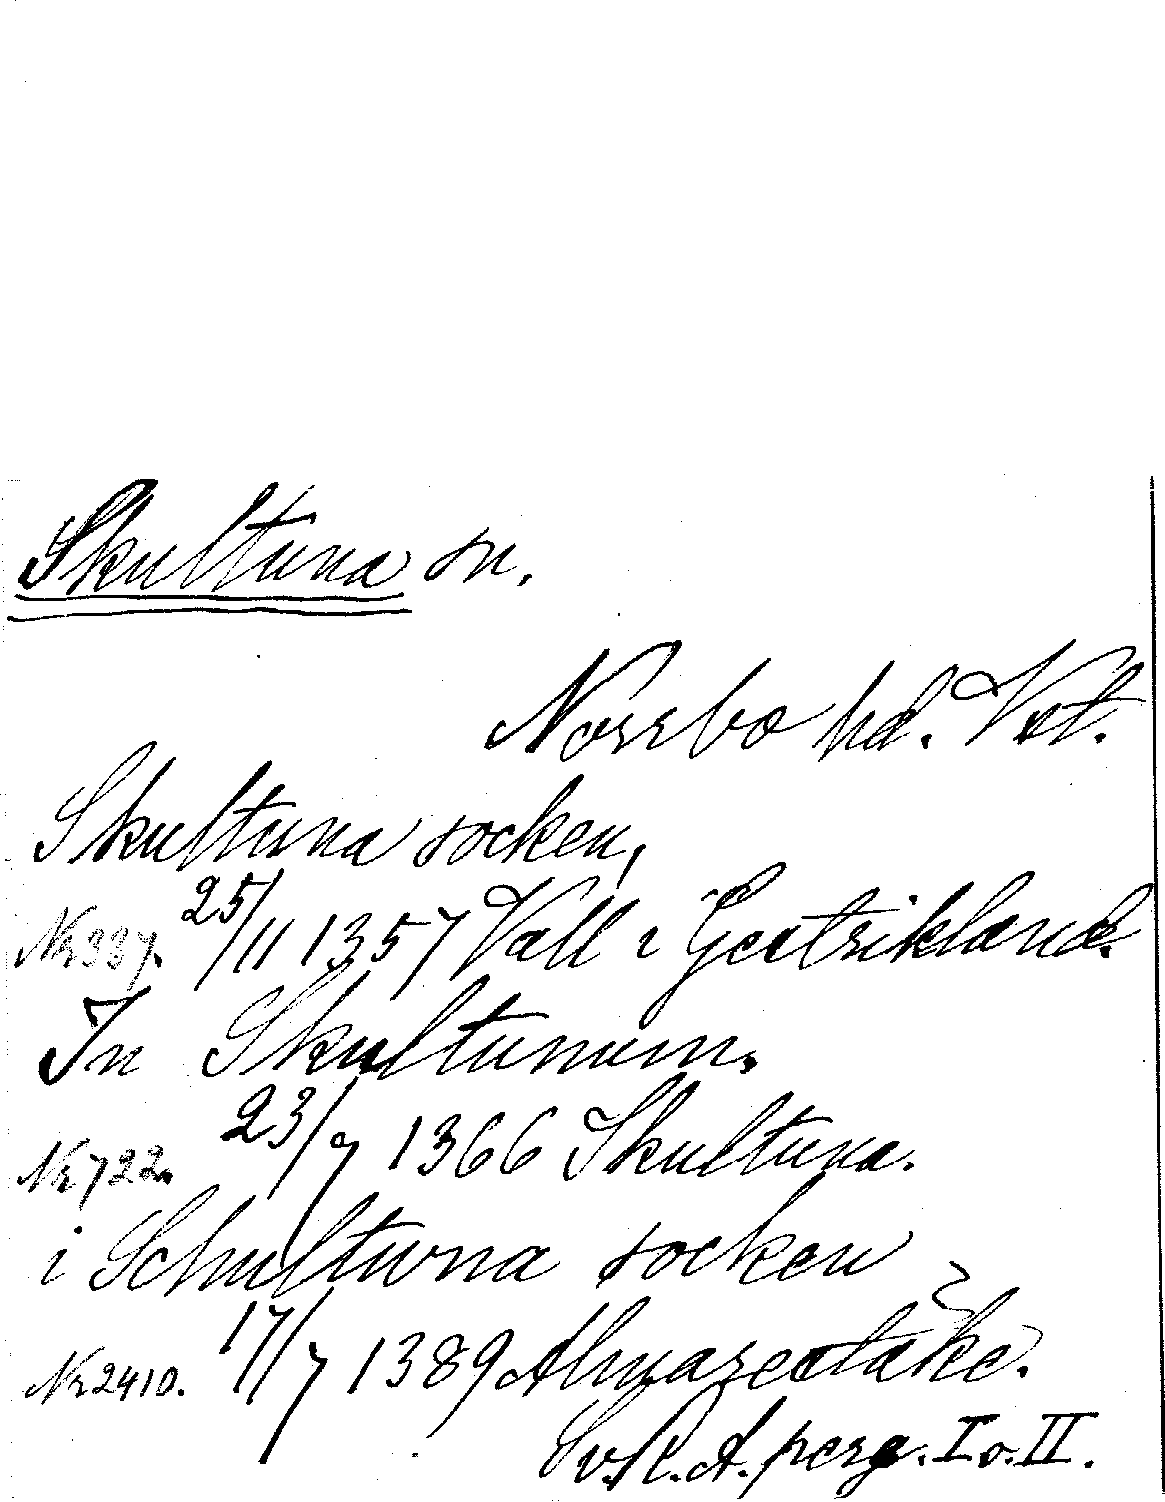 Skultuna sn.
Norrbo hd. Vstm.
Skultuna socken,
Nr 337. 25/11 1357 Vall i Gestrikland.
In Skultunum.
Nr 722. 23/7 1366 Skultuna.
i Schultuna socken
Nr 2410. 17/7 1389 Almarestäke.
Sv. R. A. perg. I o. II.